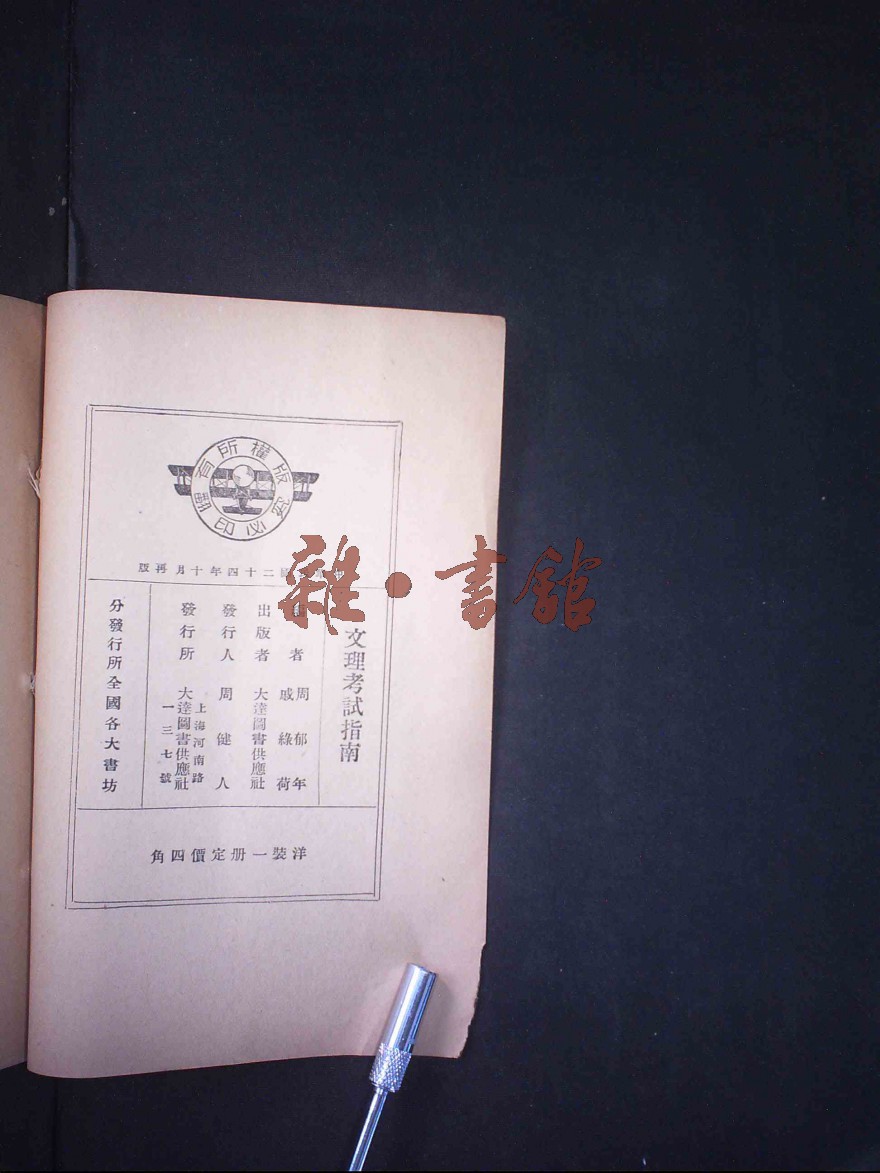 版權所有
翻印必究
國二十四年十月再版
文理考試指南
者 周郁年
戚綠荷
出版者 大達圖書供應社
發行人 周健人
發行所 大達圖書供應社
上海河南路
一三七號
分發行所全國各大書坊
洋裝一册定價四角
雜·書館